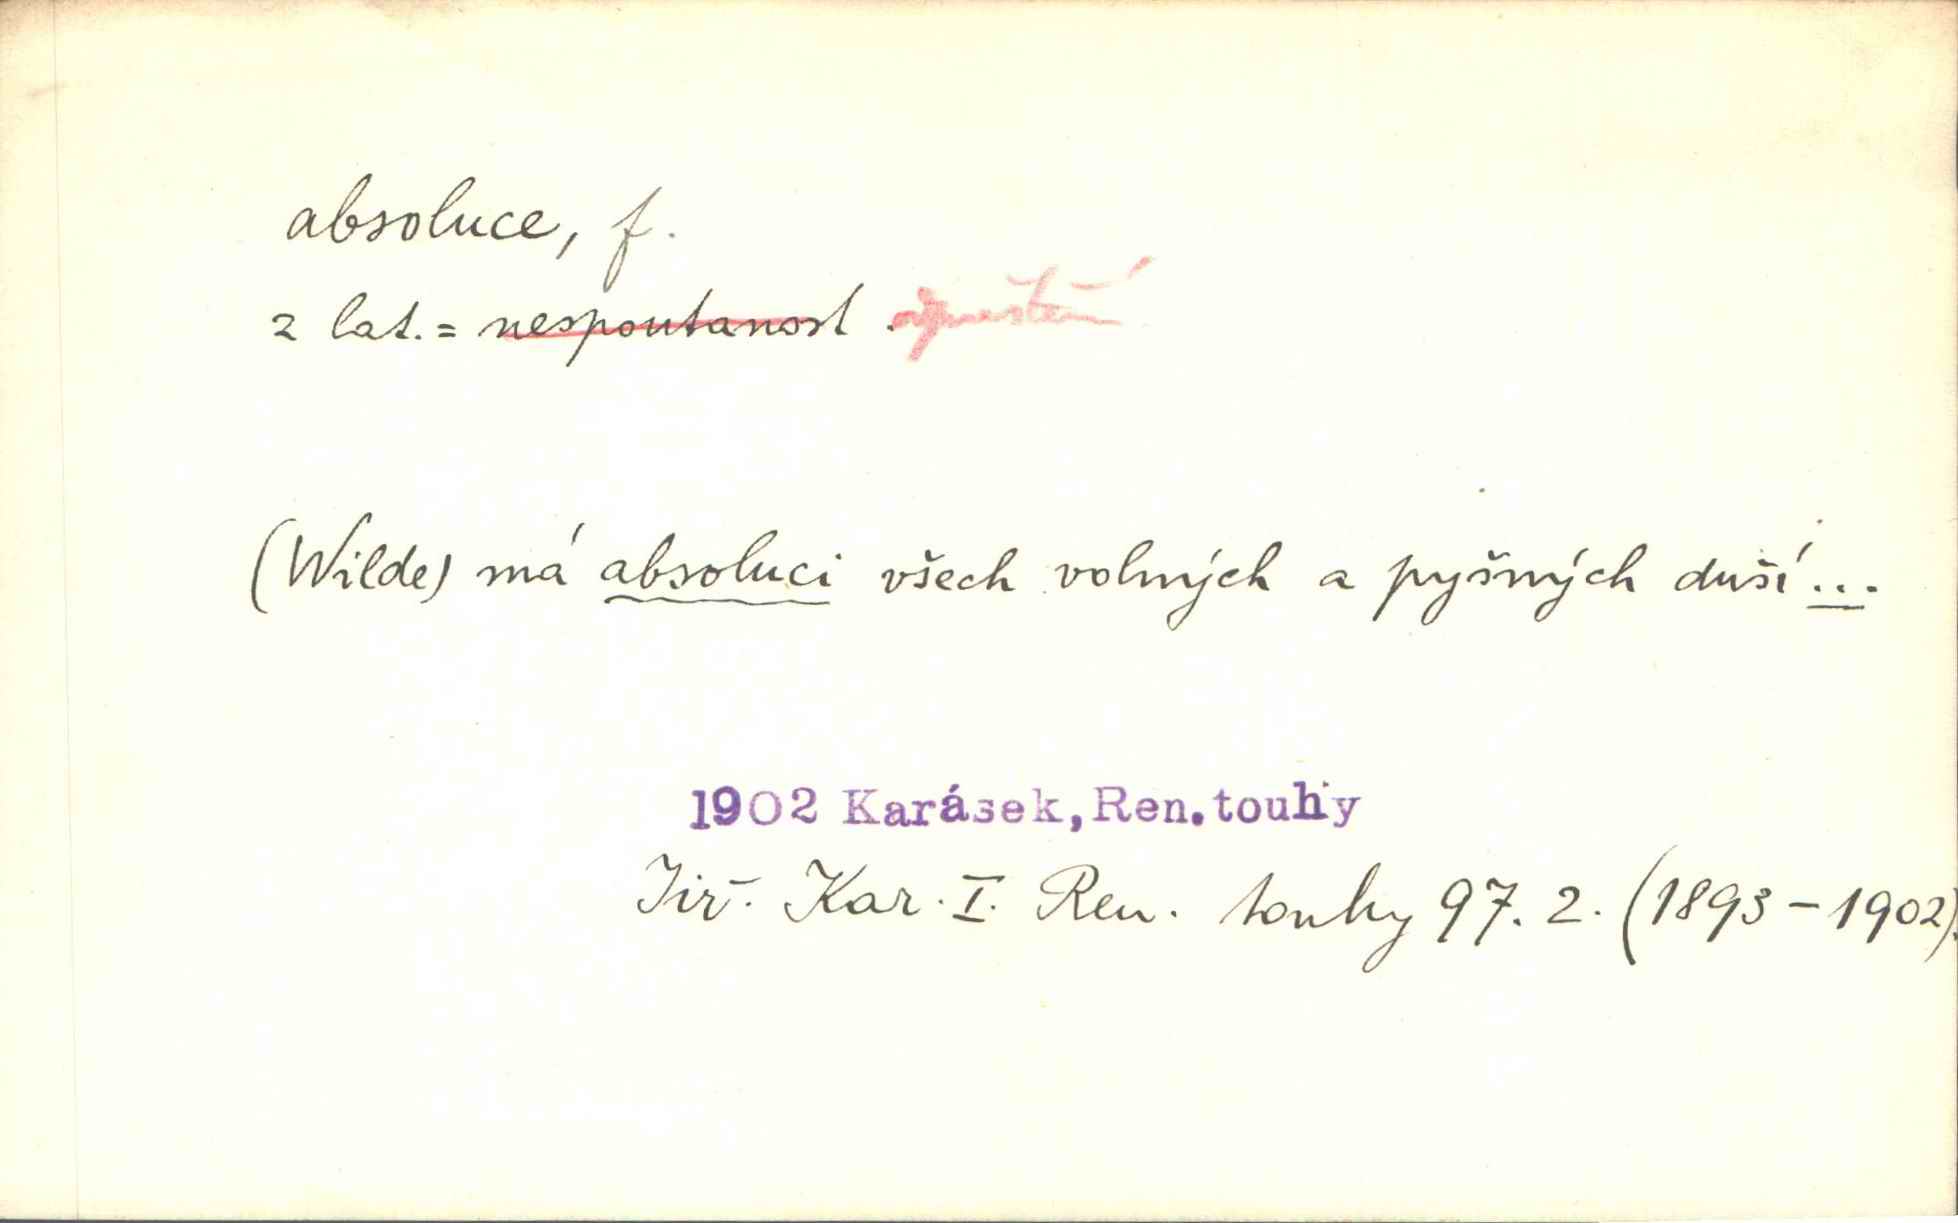 absoluce, f.
z lat. = nespoutanost. odpuštění
(Wilde) má absoluci všech volných a pyšných duší...
1902 Karásek, Ren. touhy
Jiř. Kar. I. Ren. touhy 97. 2. (1893 - 1902).